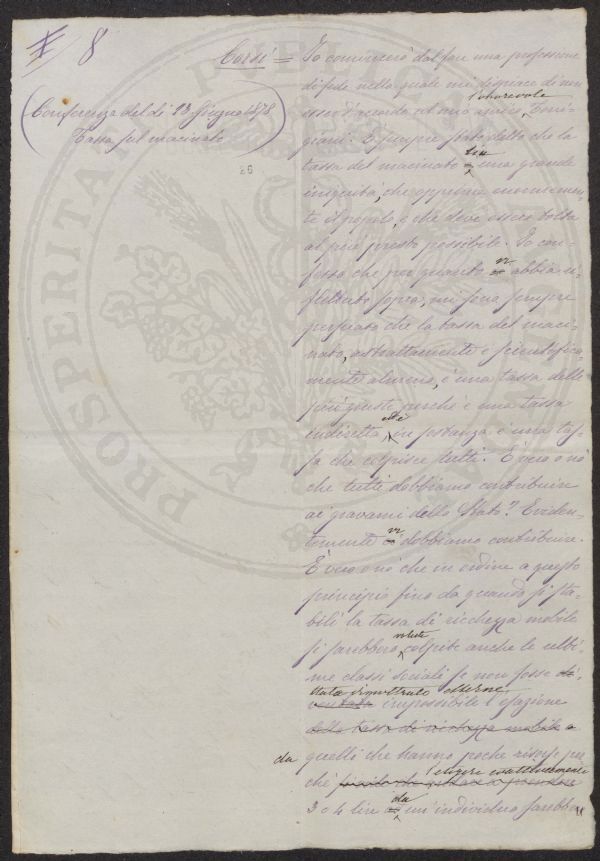 8
(Conferenza del dì 13 Giugno 1878
Tassa sul macinato)
26
Corsi = Io comincerò dal fare una professione
di fede nella quale mi dispiace di non
esser d'accordo col mio amico l'onorevole
È sempre stato detto che la
tassa del macinato sia una grande
iniquità, che opprime enormemen-
te il popolo, e che deve essere tolta
al più presto possibile. Io con-
fesso che per quanto vi abbia ri-
flettuto sopra, mi sono sempre
persuaso che la tassa del maci-
nato, astrattamente e scientifica-
mente almeno, è una tassa delle
più giuste perchè è una tassa
indiretta, che in sostanza è una tas-
sa che colpisce tutti. È vero o nò
che tutti dobbiamo contribuire
ai gravami dello Stato? Eviden-
temente vi dobbiamo contribuire.
È vero o nò che in ordine a questo
principio fino da quando si sta-
bilì la tassa di ricchezza mobile
si sarebbero volute colpite anche le ulti-
me classi sociali se non fosse
stata dimostrato esserne
impossibile l'esazione
della tassa di ricchezza mobile a
da quelli che hanno poche risorse per-
chè l'esigere
3 o 4 lire da un individuo sarebbe